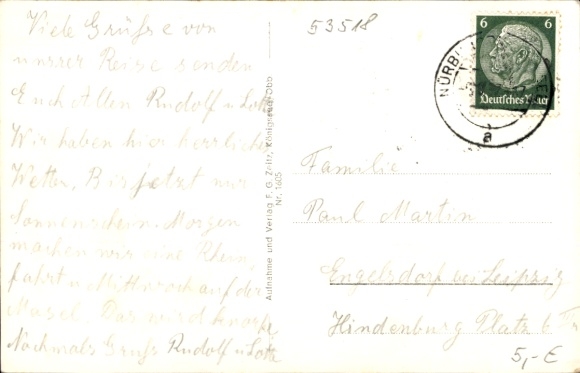 Viele Grüße von
unsrer Reise senden
Euch Allen Rudolf u. Lotte
Wir haben hier herrliches
Wetter, Bis jetzt nur
Sonnenschein. Morgen
machen wir eine Rhein,
fahrt u. Mittwoch auf der
Mosel. Das wird knorke
Nochmals Gruß Rudolf u. Lotte
Aufnahme und Verlag F. G. Zeitz, Königssee/Obb
Nr. 1605
53518
6 6
Deutsches Reich
NÜRB
a
Familie
Paul Martin
Engelsdorf bei Leipzig
Hindenburg Platz 6
5,- €